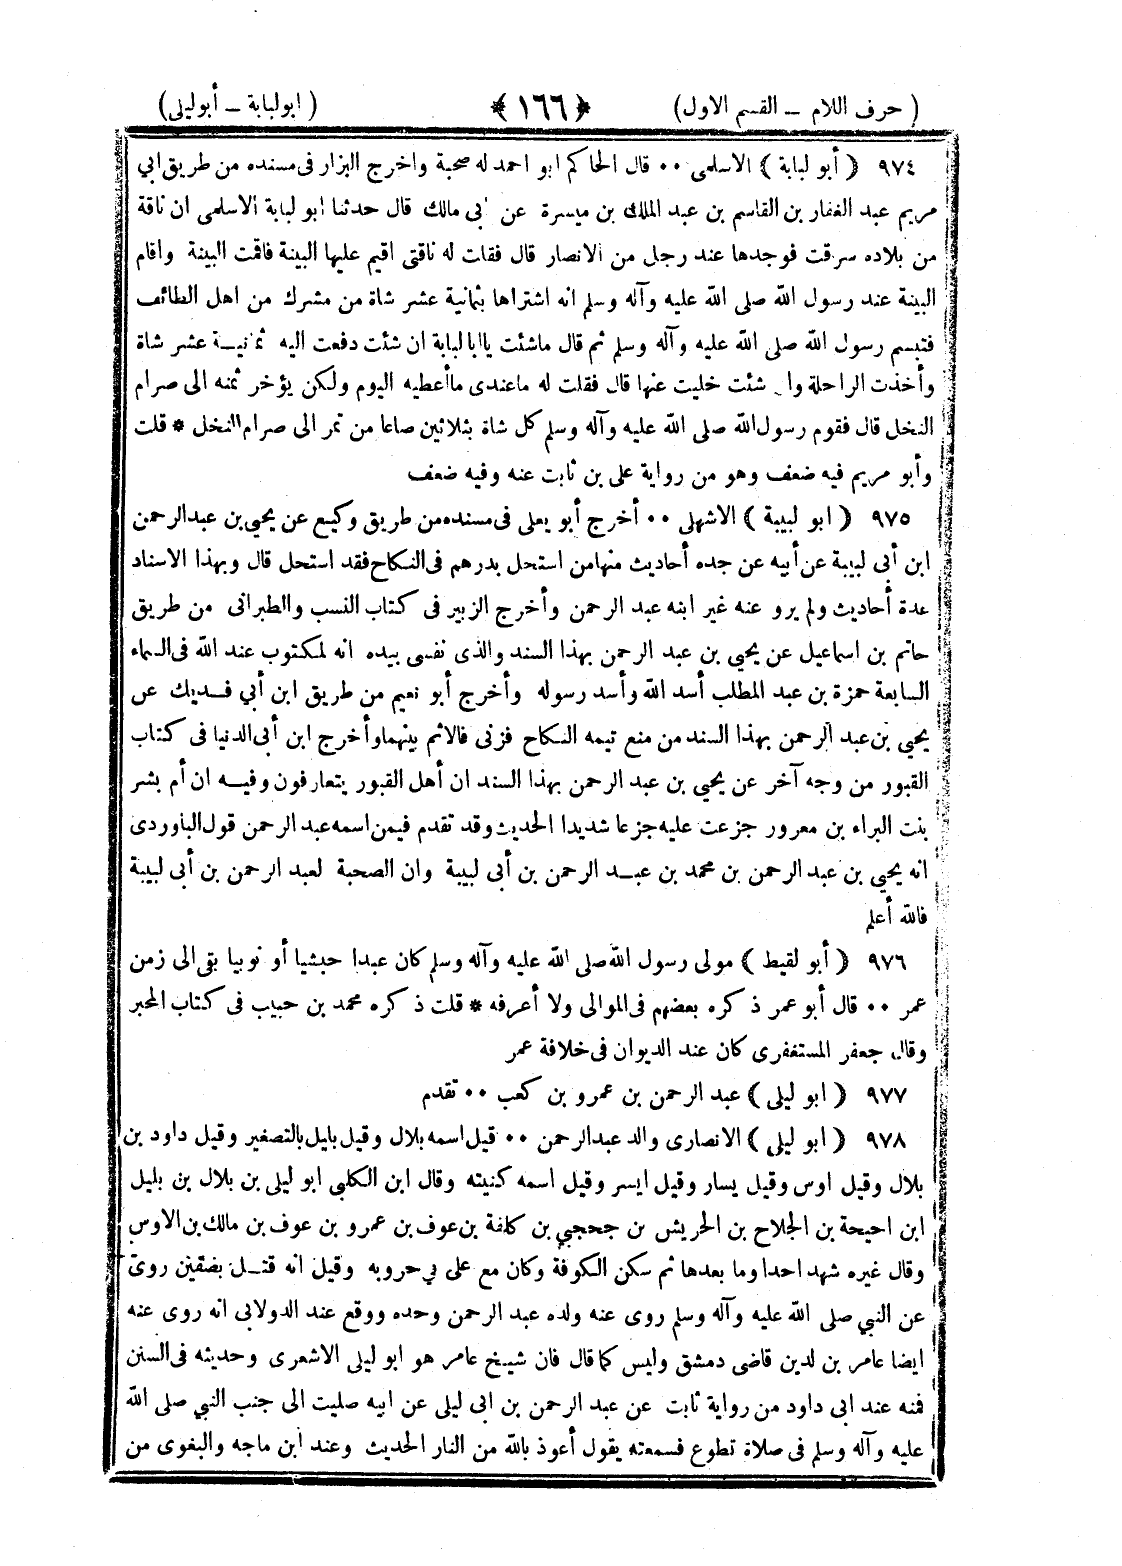 ( حرف اللام ــ القسم الاول) ﴿ ١٦٦ ﴾ ( ابولبابة ــ أبوليلى)
٩٧٤ ( أبو لبابة ) الاسلمى ٠٠ قال الحاكم ابو احمد له صحبة واخرج البزار فى مسنده من طريق ابي
مريم عبد الغفار بن القاسم بن عبد الملك بن ميسرة عن ابى مالك قال حدثنا ابو لبابة الاسلمى ان ناقة
من بلاده سرقت فوجدها عند رجل من الانصار قال فقات له ناقتى اقيم عليها البينة فاقمت البينة واقام
البينة عند رسول الله صلى الله عليه وآله وسلم انه اشتراها بثمانية عشر شاة من مشرك من اهل الطائف
فتبسم رسول الله صلى الله عليه وآله وسلم ثم قال ماشئت ياابا لبابة ان شئت دفعت اليه ثمانيــة عشر شاة
وأخذت الراحلة وان شئت خليت عنها قال فقلت له ماعندى ماأعطيه اليوم ولكن يؤخر ثمنه الى صرام
النخل قال فقوم رسول الله صلى الله عليه وآله وسلم كل شاة بثلاثين صاعا من تمر الى صرام النخل * قلت
وأبو مريم فيه ضعف وهو من رواية على بن ثابت عنه وفيه ضعف
٩٧٥ ( ابو لبيبة ) الاشهلى ٠٠ أخرج أبو يعلى فى مسنده من طريق وكيع عن يحيى بن عبدالرحمن
ابن أبى لبيبة عن أبيه عن جده أحاديث منها من استحل بدرهم فى النكاح فقد استحل قال وبهذا الاسناد
عدة أحاديث ولم يرو عنه غير ابنه عبد الرحمن وأخرج الزبير فى كتاب النسب والطبرانى من طريق
حاتم بن اسماعيل عن يحيى بن عبد الرحمن بهذا السند والذى نفسى بيده انه لمكتوب عند الله فى السماء
السابعة حمزة بن عبد المطلب أسد الله وأسد رسوله وأخرج أبو نعيم من طريق ابن أبي فــديك عن
يحيى بن عبد الرحمن بهذا السند من منع تيمه النكاح فزنى فالاثم بينهما وأخرج ابن أبى الدنيا فى كتاب
القبور من وجه آخر عن يحيى بن عبد الرحمن بهذا السند ان أهل القبور يتعارفون وفيــه ان أم بشر
بنت البراء بن معرور جزعت عليه جزعا شديدا الحديث وقد تقدم فيمن اسمه عبد الرحمن قول الباوردى
انه يحيى بن عبد الرحمن بن محمد بن عبــد الرحمن بن أبى لبيبة وان الصحبة لعبد الرحمن بن أبى لبيبة
فالله أعلم
٩٧٦ ( أبو لقيط ) مولى رسول الله صلى الله عليه وآله وسلم كان عبدا حبشيا أو نوبيا بقى الى زمن
عمر ٠٠ قال أبو عمر ذكره بعضهم فى الموالى ولا أعرفه * قلت ذكره محمد بن حبيب فى كتاب المحبر
وقال جعفر المستغفرى كان عند الديوان فى خلافة عمر
٩٧٧ ( ابو ليلى ) عبد الرحمن بن عمرو بن كعب ٠٠ تقدم
٩٧٨ ( ابو ليلى ) الانصارى والد عبدالرحمن ٠٠ قيل اسمه بلال وقيل بليل بالتصغير وقيل داود بن
بلال وقيل اوس وقيل يسار وقيل ايسر وقيل اسمه كنيته وقال ابن الكلبي ابو ليلى بن بلال بن بليل
ابن احيحة بن الجلاح بن الحريش بن جحجبي بن كلفة بن عوف بن عمرو بن عوف بن مالك بن الاوس
وقال غيره شهد احدا وما بعدها ثم سكن الكوفة وكان مع على في حروبه وقيل انه قتــل بصفين روى
عن النبي صلى الله عليه وآله وسلم روى عنه ولده عبد الرحمن وحده ووقع عند الدولابى انه روى عنه
ايضا عامر بن لدين قاضى دمشق وليس كما قال فان شيخ عامر هو ابو ليلى الاشعرى وحديثه فى السنن
فمنه عند ابى داود من رواية ثابت عن عبد الرحمن بن ابى ليلى عن ابيه صليت الى جنب النبي صلى الله
عليه وآله وسلم فى صلاة تطوع فسمعته يقول أعوذ بالله من النار الحديث وعند ابن ماجه والبغوى من